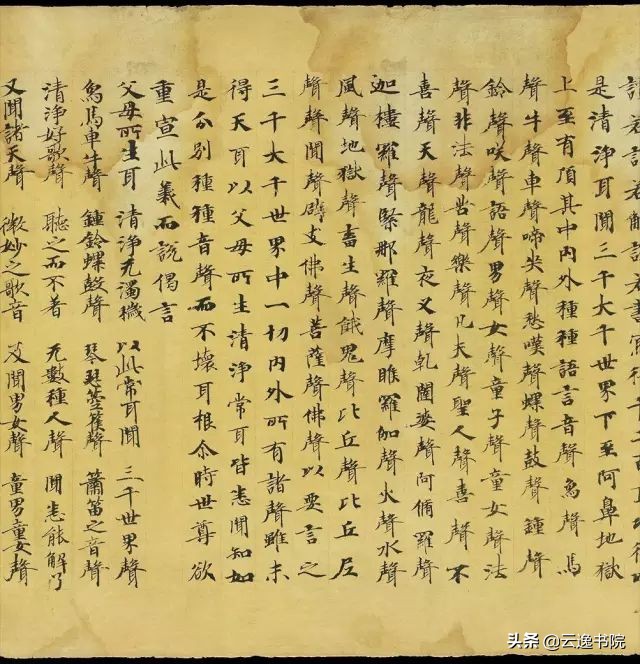 若解說若書寫得千二百
是清淨耳聞三千大千世界下至阿鼻地獄
上至有頂其中內外種種語言音聲象聲馬
聲牛聲車聲啼哭聲愁嘆聲螺聲鼓聲鍾聲
鈴聲咲聲語聲男聲女聲童子聲童女聲法
聲非法聲苦聲樂聲凡夫聲聖人聲喜聲不
喜聲天聲龍聲夜叉聲乾闥婆聲阿脩羅聲
迦樓羅聲緊那羅聲摩睺羅伽聲火聲水聲
風聲地獄聲畜生聲餓鬼聲比丘聲比丘尼
聲聲聞聲辟支佛聲菩薩聲佛聲以要言之
三千大千世界中一切內外所有諸聲雖未
得天耳以父母所生清淨常耳皆悉聞知如
是分別種種音聲而不壞耳根尒時世尊欲
重宣此義而說偈言
父母所生耳 清淨无濁穢 以此常耳聞 三千世界聲
象馬車牛聲 鍾鈴螺鼓聲 琴瑟箜篌聲 簫笛之音聲
清淨好歌聲 聽之而不著 无數種人聲 聞悉能解了
又聞諸天聲 微妙之歌音 及聞男女聲 童男童女聲
头条 @云逸书院